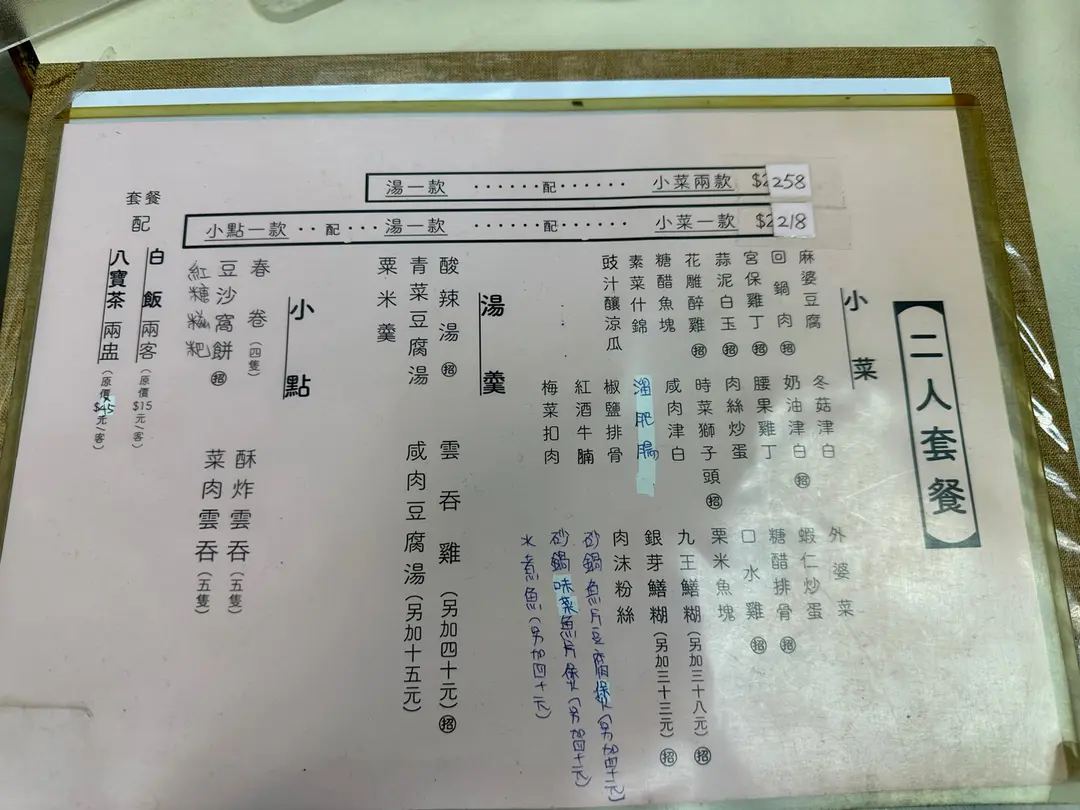 二人套餐
湯一款 ······配······ 小菜兩款 $258
小點一款 ··配···湯一款 ······配······ 小菜一款 $218
小菜
麻婆豆腐
回鍋肉 招
宮保雞丁 招
蒜泥白玉 招
花雕醉雞 招
糖醋魚塊
素菜什錦
豉汁釀涼瓜
冬菇津白
奶油津白 招
腰果雞丁
肉絲炒蛋
時菜獅子頭 招
咸肉津白
溜肥腸
椒鹽排骨
紅酒牛腩
梅菜扣肉
外婆菜
蝦仁炒蛋
糖醋排骨 招
口水雞 招
粟米魚塊
九王鱔糊(另加三十八元) 招
銀芽鱔糊(另加三十三元) 招
肉沫粉絲
砂鍋魚片豆腐煲(另加四十元)
砂鍋味菜魚片煲(另加四十元)
水煮魚(另加四十元)
湯羹
酸辣湯 招
青菜豆腐湯
粟米羹
雲吞雞(另加四十元) 招
咸肉豆腐湯(另加十五元)
小點
春卷(四隻)
豆沙窩餅 招
紅糖糍粑
酥炸雲吞(五隻)
菜肉雲吞(五隻)
套餐
配
白飯兩客(原價$15元/客)
八寶茶兩盅(原價$45元/客)